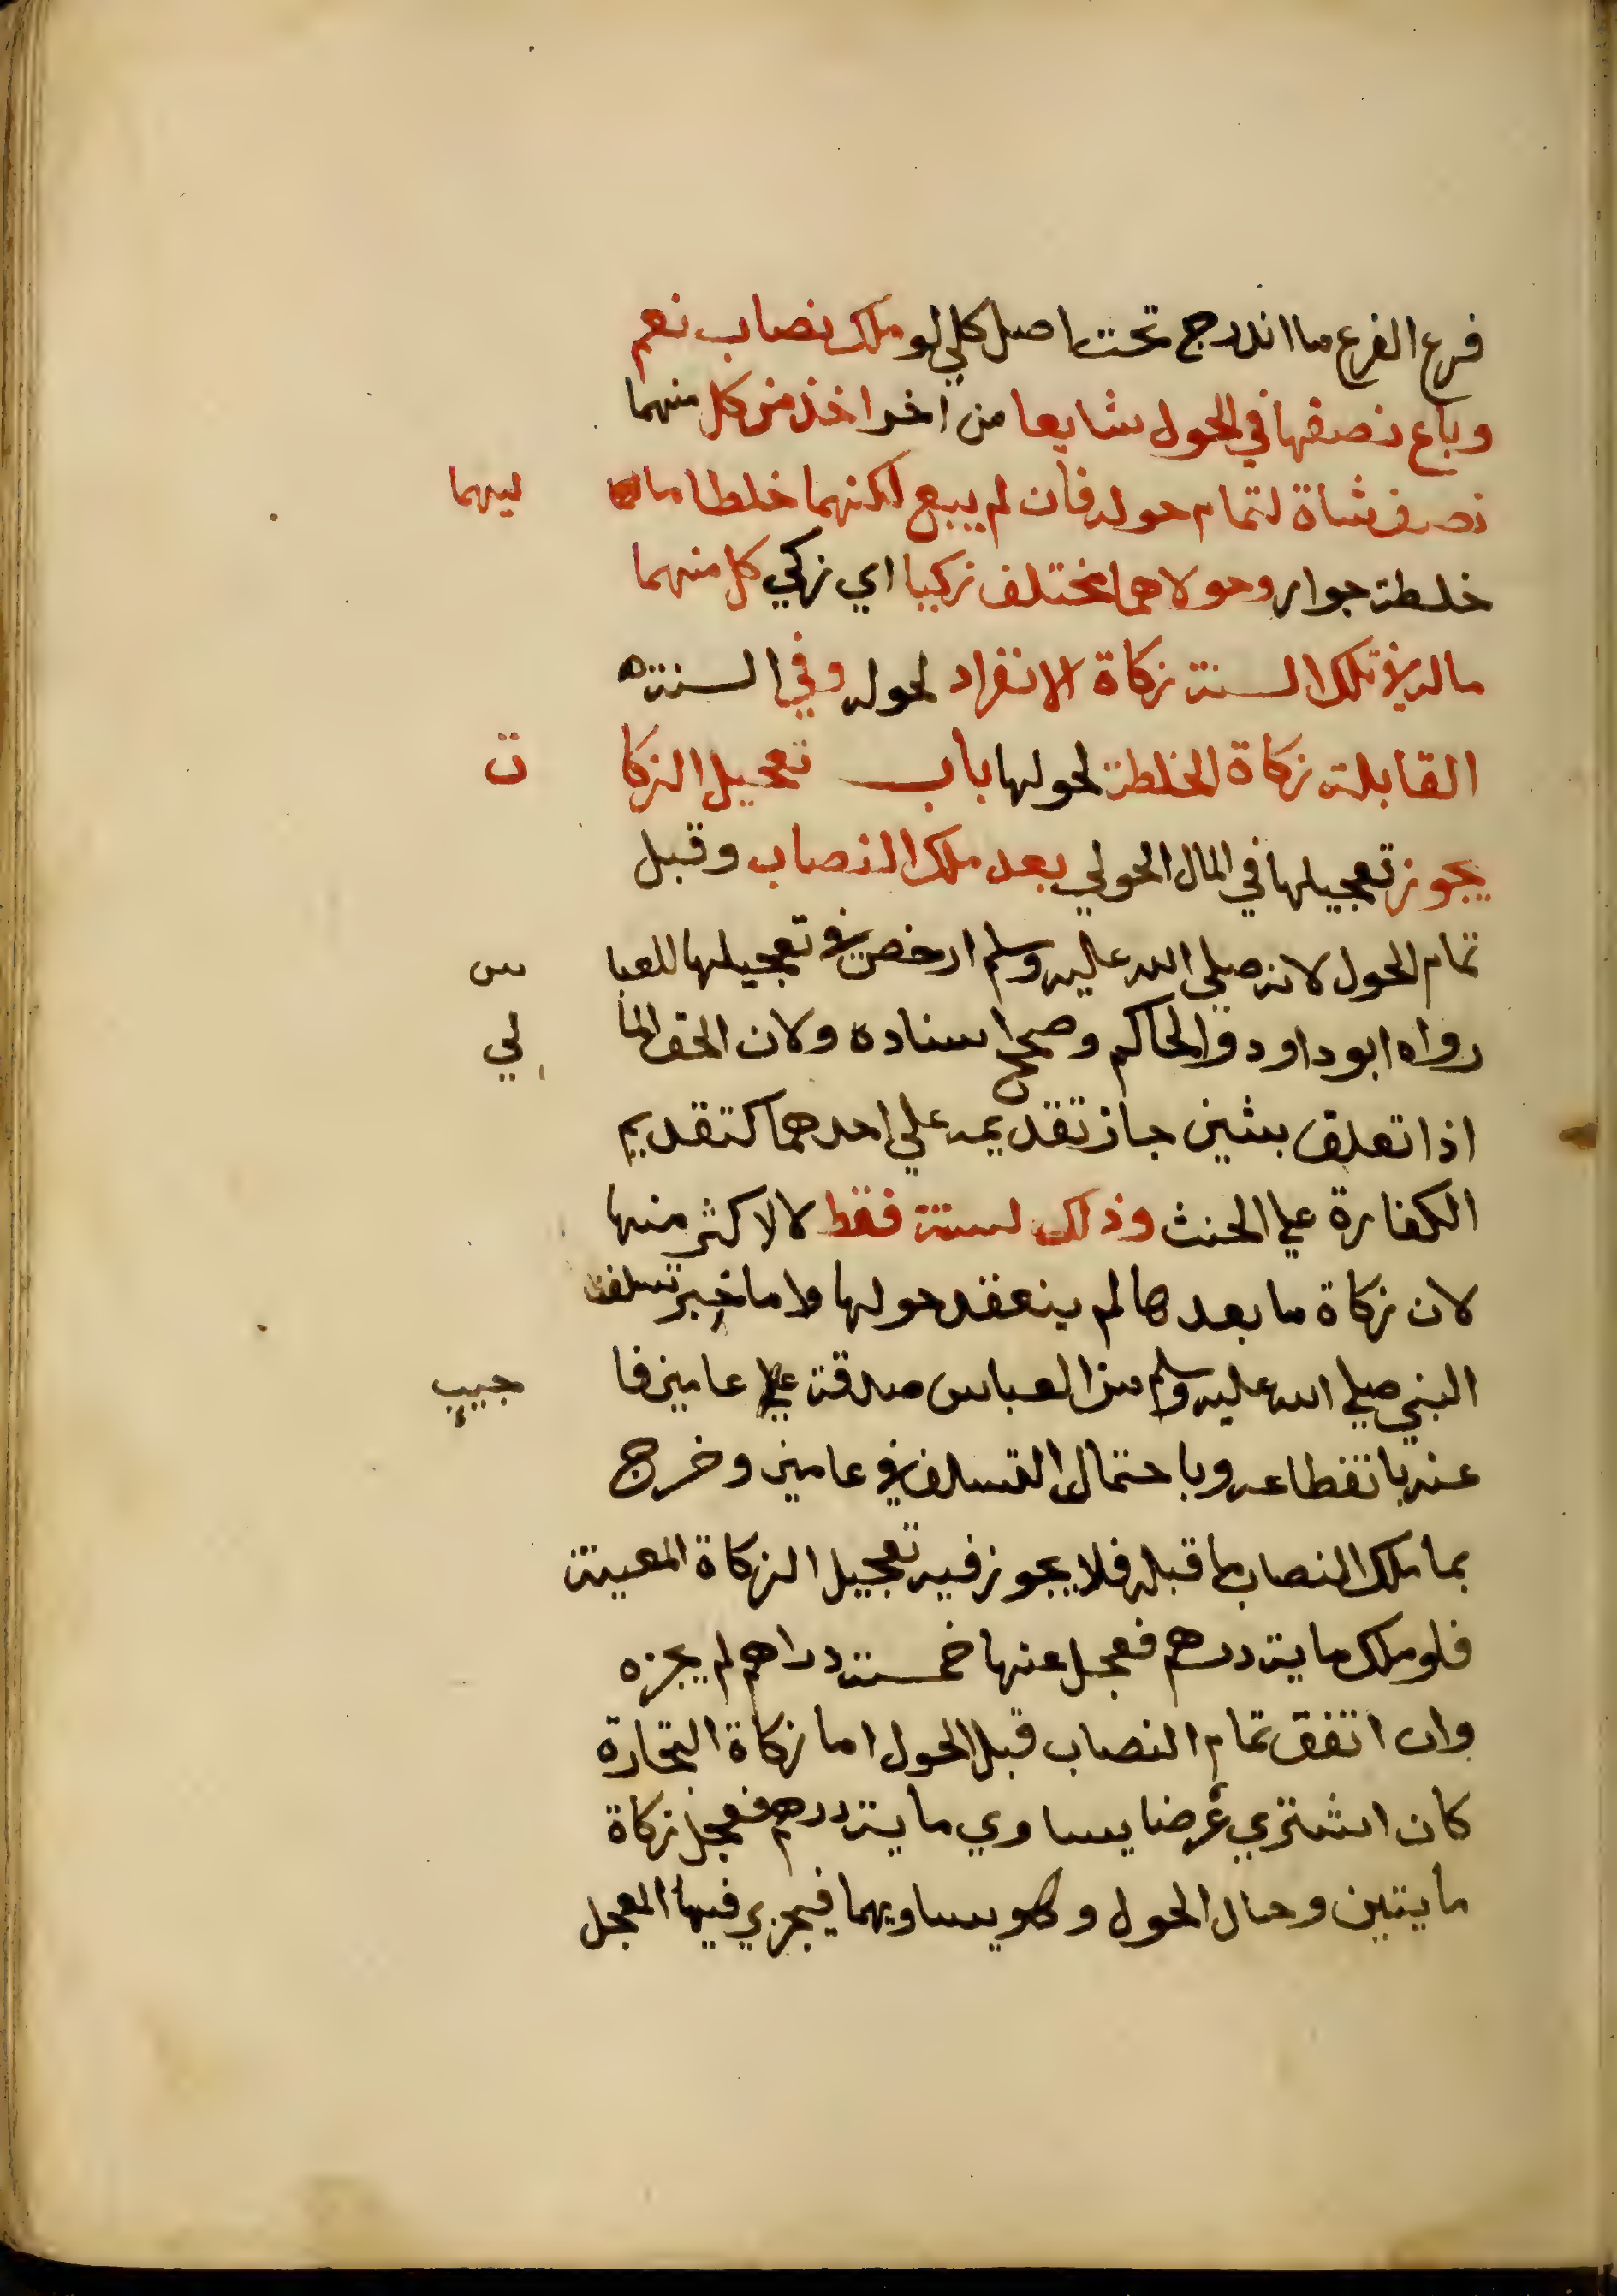 فرع الفرع ما اندرج تحت اصل كلي لو ملك نصاب نعم
وباع نصفها في الحول شايعا من اخر اخذ من كل منهما
نصف شاة لتمام حوله فان لم يبع لكنهما خلطا ما ليهما
خلطة جوار وحولاهما مختلف زكيا اي زكي كل منهما
ماله في تلك السنة زكاة الانفراد لحوله وفي السنة
القابلة زكاة الخلطة لحولها باب تعجيل الزكا ت
يجوز تعجيلها في المال الحولي بعد ملك النصاب وقبل
تمام الحول لانه صلي الله عليه وسلم ارخص في تعجيلها للعبا س
رواه ابو داود والحاكم وصحح اسناده ولان الحق الما لي
اذا تعلق بشين جاز تقديمه علي احدهما كتقديم
الكفارة علي الحنث وذلك لسنة فقط لا لاكثر منها
لان زكاة ما بعدها لم ينعقد حولها واما خبر تسلف
النبي صلي الله عليه وسلم من العباس صدقة عامين فا جيب
عنه بانقطاعه وباحتمال التسلف في عامين وخرج
بما ملك النصاب ما قبله فلا يجوز فيه تعجيل الزكاة المعينة
فلو ملك ماية درهم فعجل عنها خمسة دراهم لم يجزه
وان اتفق تمام النصاب قبل الحول اما زكاة التجارة
كان اشتري عرضا يساوي ماية درهم فعجل زكاة
مايتين وحال الحول وهو يساويهما فيجزي فيها المعجل